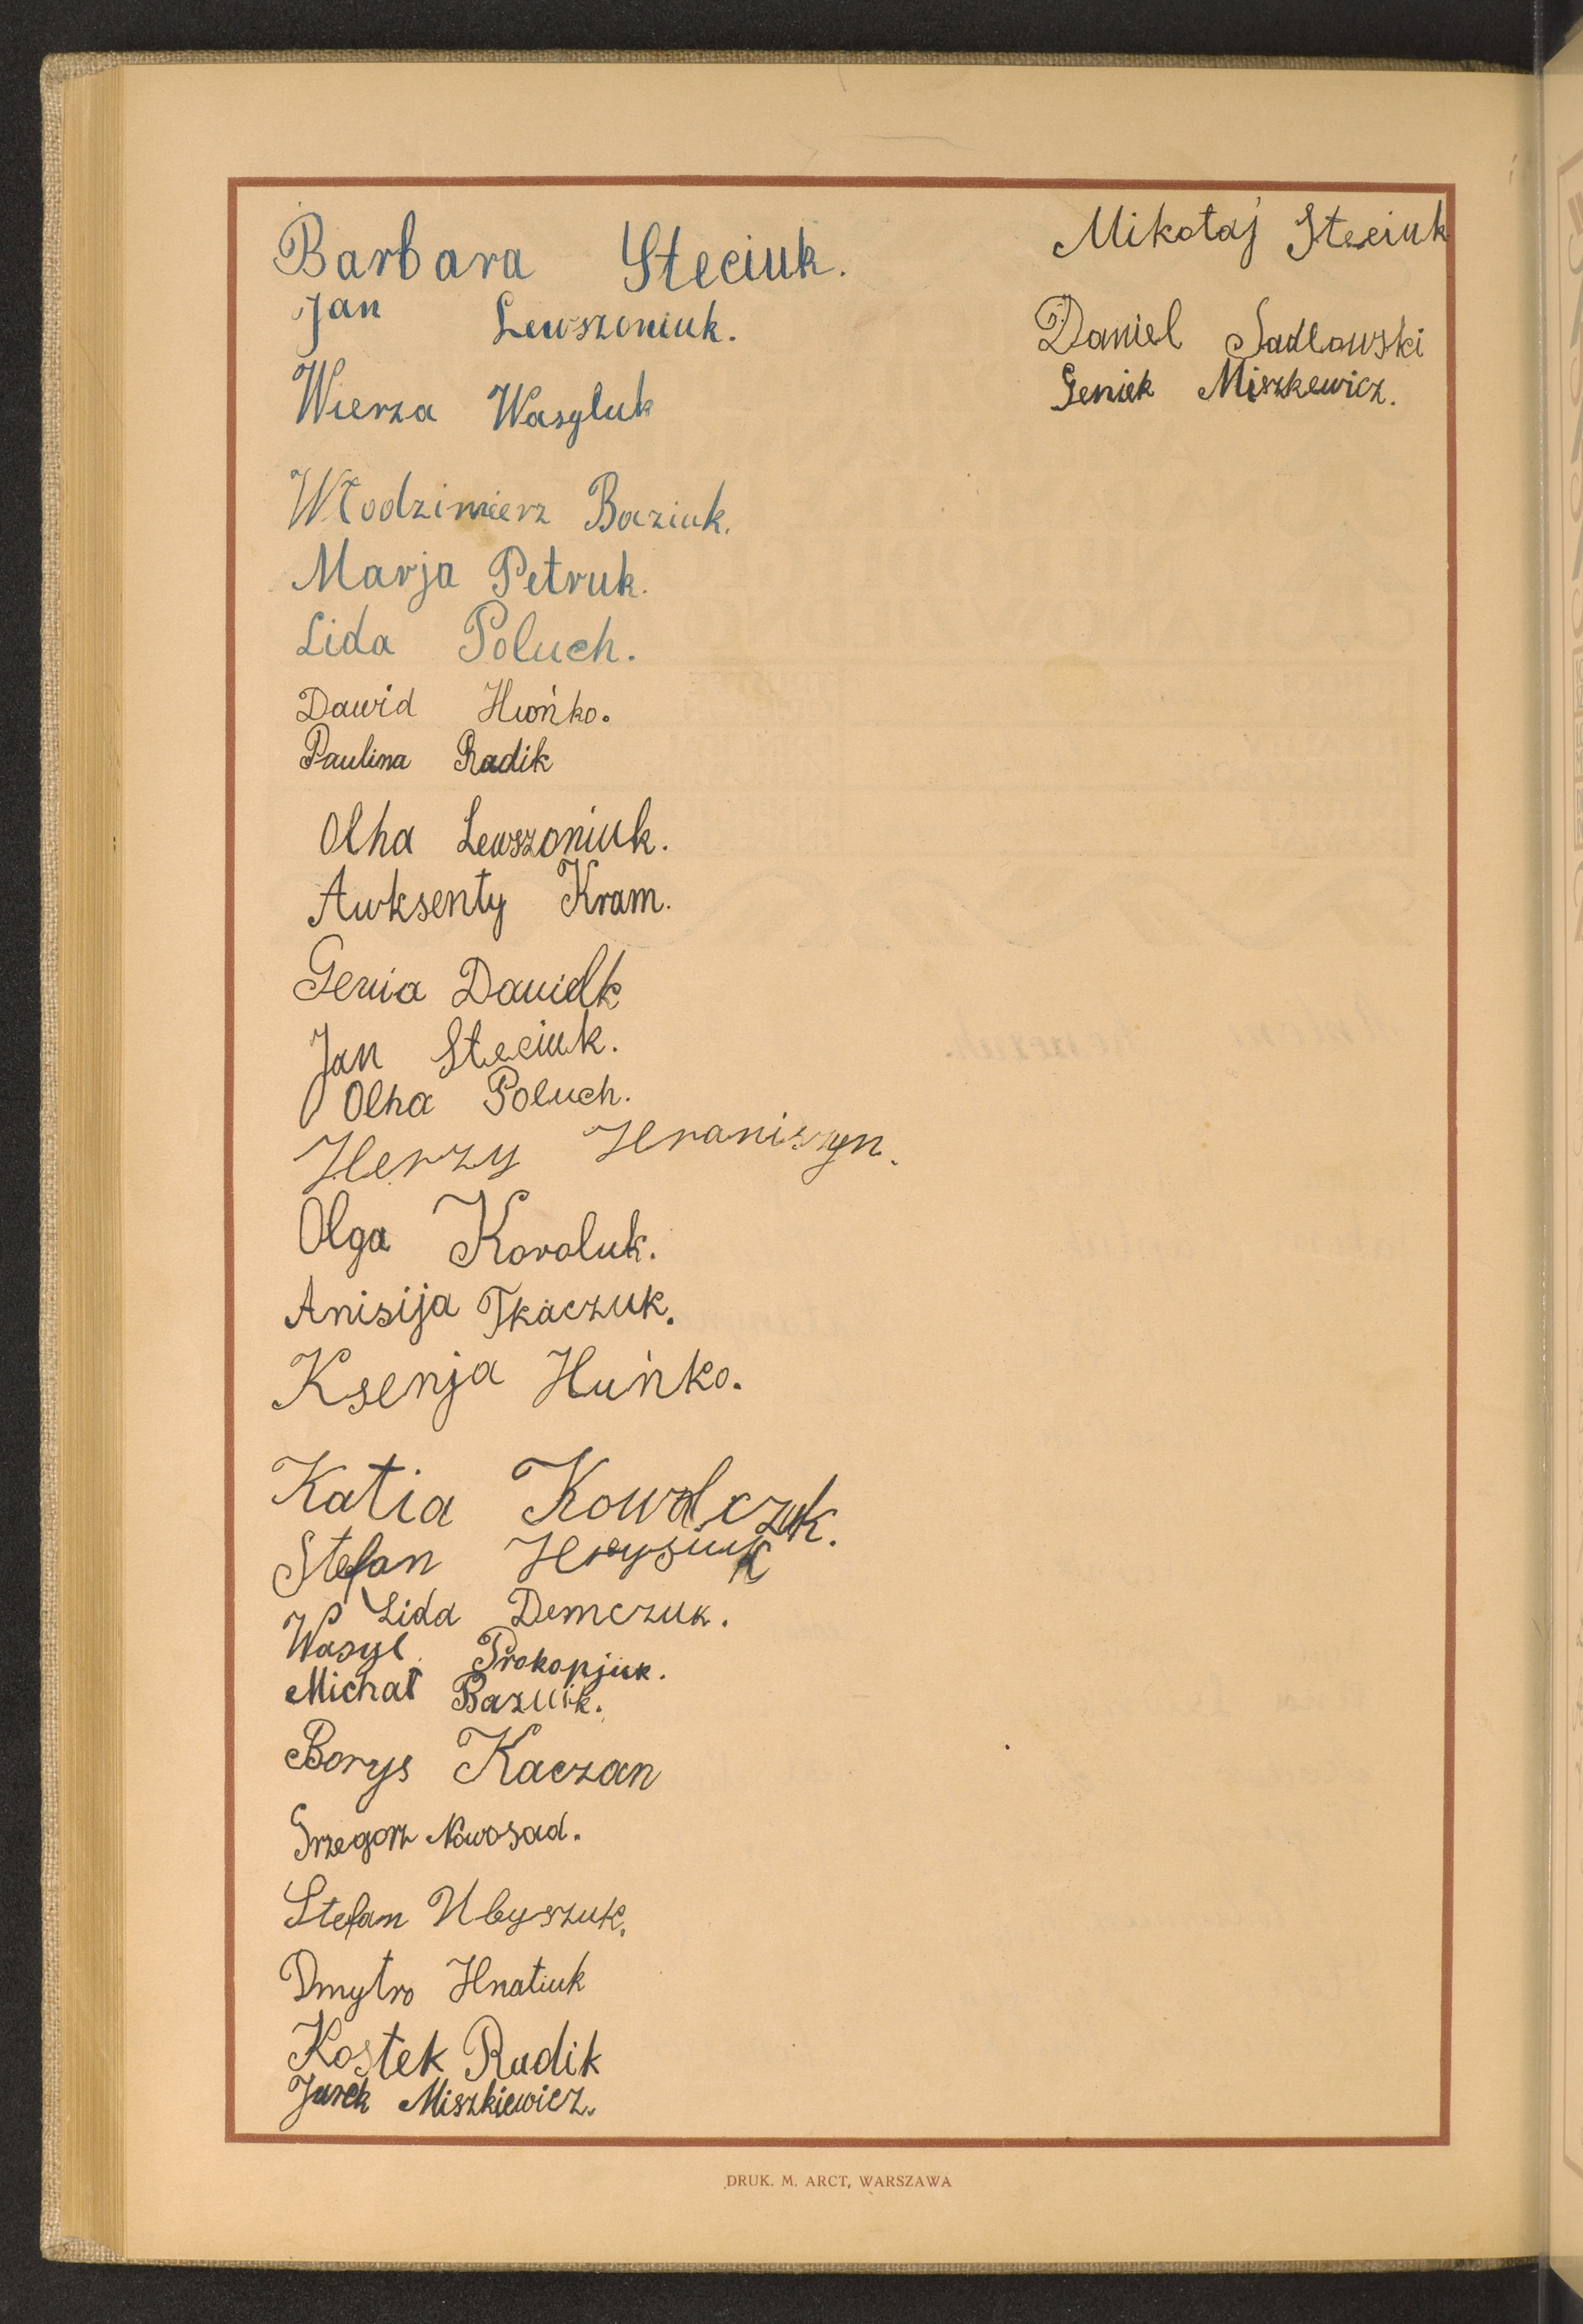 Barbara Steciuk.
Jan Lewszoniuk.
Wierza Wasyluk
Włodzimierz Baziuk.
Marja Petruk.
Lida Poluch.
Dawid Huńko.
Paulina Radik
Olha Lewszoniuk.
Awksenty Kram.
Genia
Jan Steciuk.
Olha Poluch.
Herzy Hraniszyn.
Olga Koroluk.
Anisija Tkaczuk.
Ksenja Huńko.
Katia Kowalczuk.
Stefan Hrysiuk
Lida Demczuk.
Wasyl Prokopjuk.
Michał Baziuk.
Borys Kaczan
Grzegorz Nowosad.
Stefan Ubyszuk.
Dmytro Hnatiuk
Kostek Radik
Jurek Miszkiewicz.
Mikołaj Steciuk
Daniel Sadłowski
Geniek Miszkewicz.
DRUK. M. ARCT, WARSZAWA